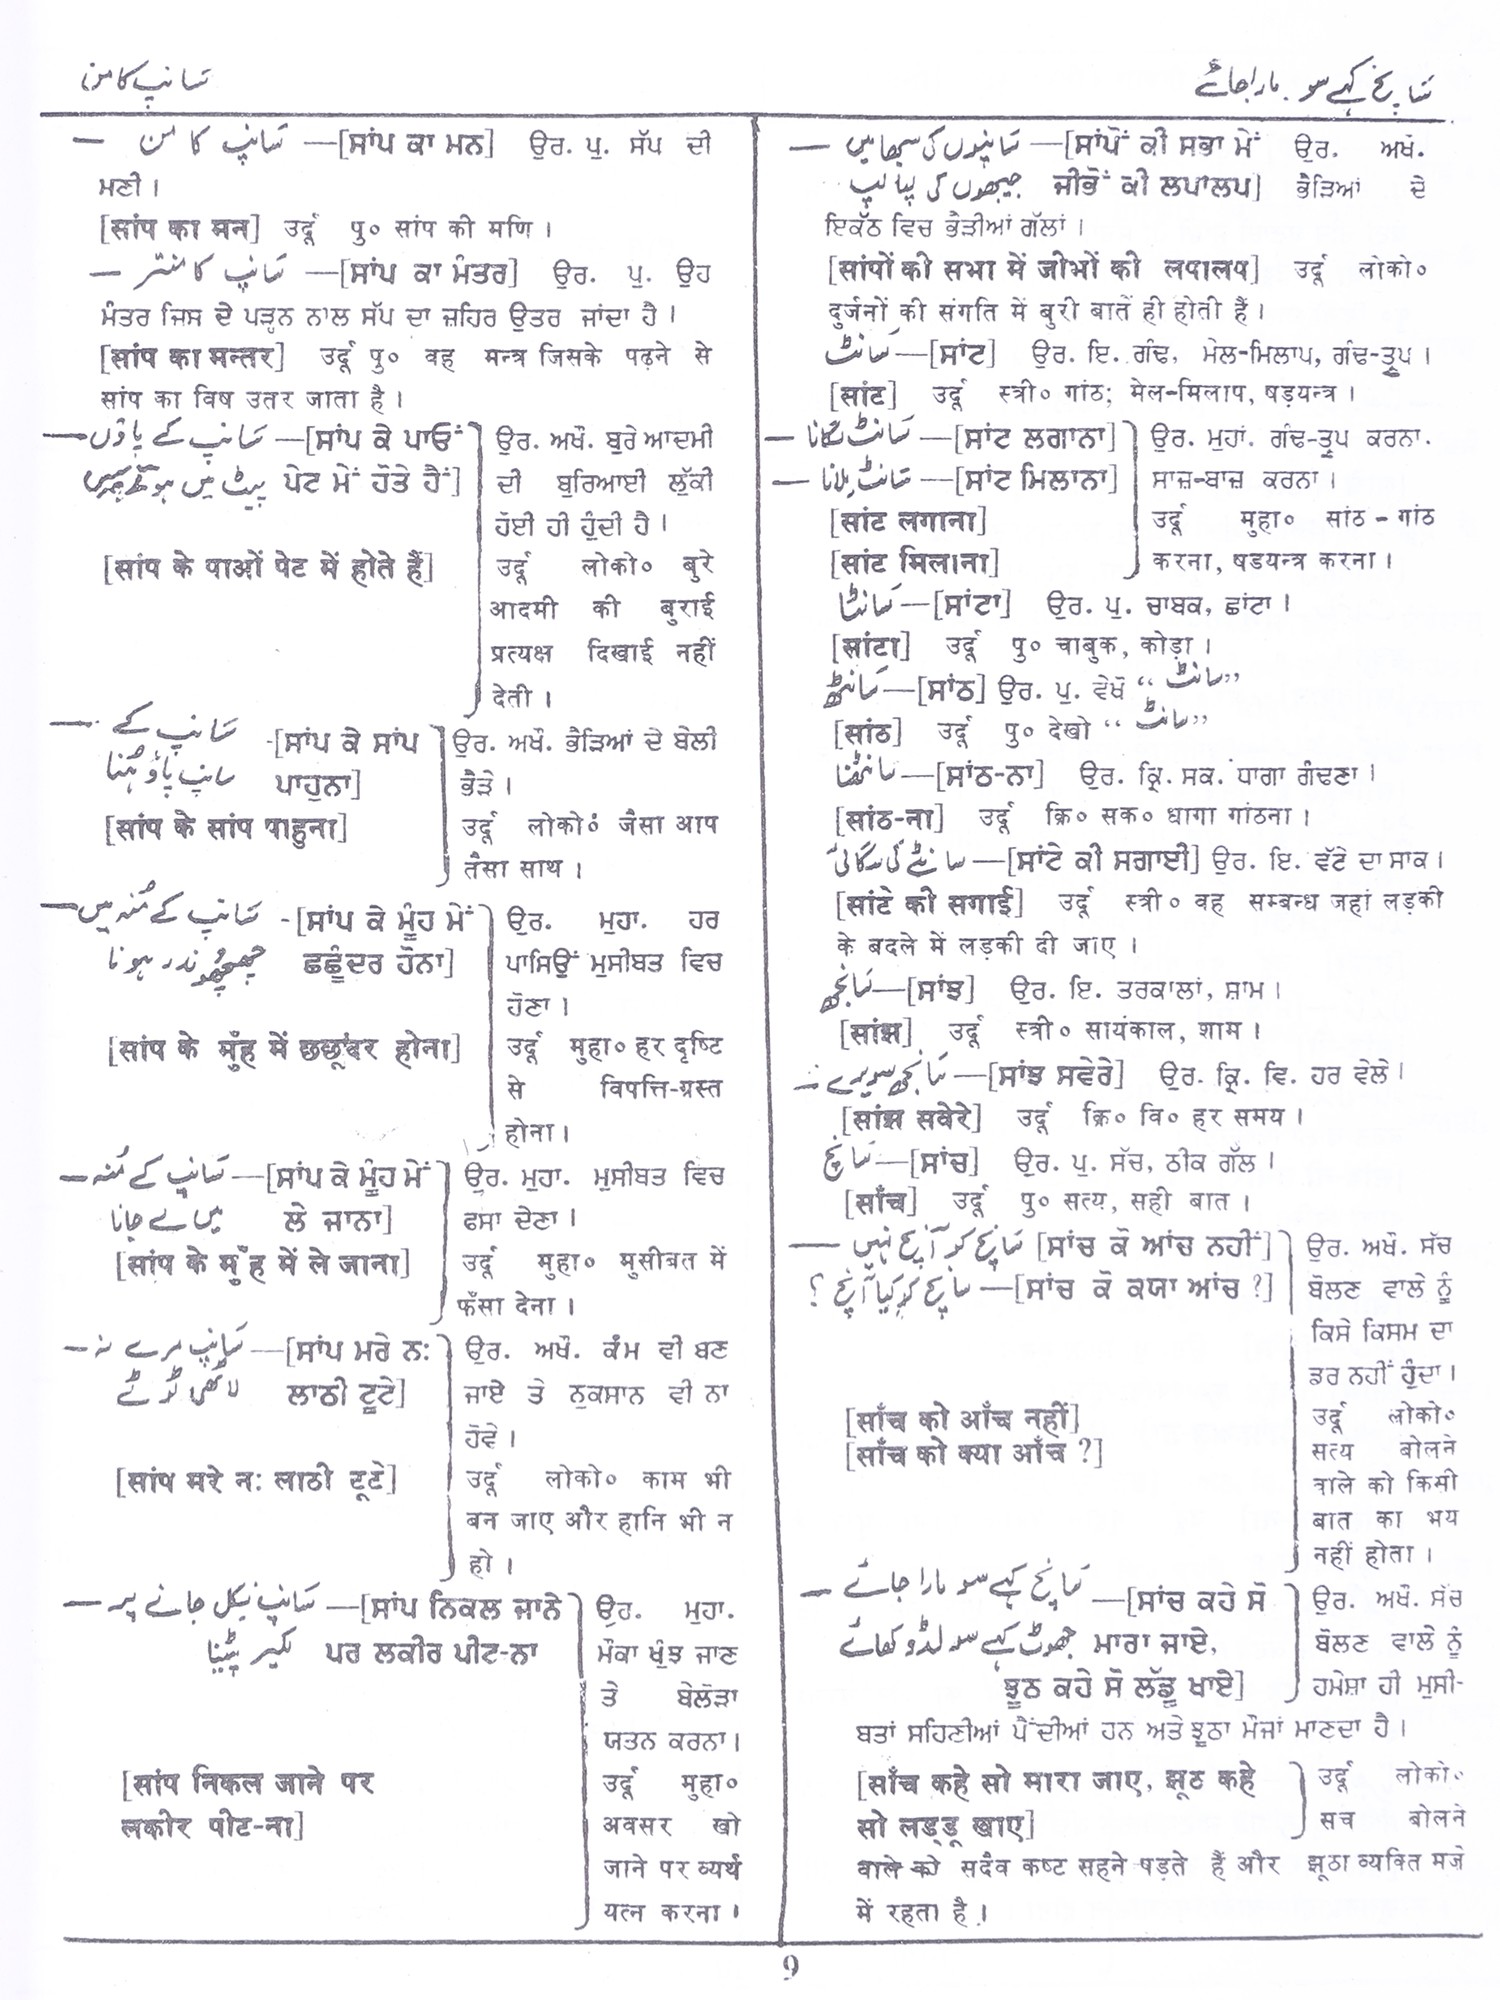 سانپ کا من
سانچ کہے سو مارا جائے
سانپ کا من —[ਸਾਂਪ ਕਾ ਮਨ] ਉਰ. ਪੁ. ਸੱਪ ਦੀ
ਮਣੀ।
[सांप का मन] उर्दू पु० सांप की मणि।
سانپ کا منتر —[ਸਾਂਪ ਕਾ ਮੰਤਰ] ਉਰ. ਪੁ. ਉਹ
ਮੰਤਰ ਜਿਸ ਦੇ ਪੜ੍ਹਨ ਨਾਲ ਸੱਪ ਦਾ ਜ਼ਹਿਰ ਉਤਰ ਜਾਂਦਾ ਹੈ।
[सांप का मन्तर] उर्दू पु० वह मन्त्र जिसके पढ़ने से
सांप का विष उतर जाता है।
سانپ کے پاؤں —[ਸਾਂਪ ਕੇ ਪਾਓਂ ਉਰ. ਅਖੌ. ਬੁਰੇ ਆਦਮੀ
پیٹ میں ہوتے ہیں ਪੇਟ ਮੇਂ ਹੋਤੇ ਹੈਂ] ਦੀ ਬੁਰਿਆਈ ਲੁੱਕੀ
ਹੋਈ ਹੀ ਹੁੰਦੀ ਹੈ।
[सांप के पाओं पेट में होते हैं] उर्दू लोको० बुरे
आदमी की बुराई
प्रत्यक्ष दिखाई नहीं
देती।
سانپ کے -[ਸਾਂਪ ਕੇ ਸਾਂਪ ਉਰ. ਅਖੌ. ਭੈੜਿਆਂ ਦੇ ਬੇਲੀ
سانپ پاؤہنا ਪਾਹੁਨਾ] ਭੈੜੇ।
[सांप के सांप पाहुना] उर्दू लोको० जैसा आप
तैसा साथ।
سانپ کے منہ میں -[ਸਾਂਪ ਕੇ ਮੂੰਹ ਮੇਂ ਉਰ. ਮੁਹਾ. ਹਰ
چھچھوندر ہونا ਛਛੂੰਦਰ ਹੋਨਾ] ਪਾਸਿਉਂ ਮੁਸੀਬਤ ਵਿਚ
ਹੋਣਾ।
[सांप के मुँह में छछूंदर होना] उर्दू मुहा० हर दृष्टि
से विपत्ति-ग्रस्त
होना।
سانپ کے منہ —[ਸਾਂਪ ਕੇ ਮੂੰਹ ਮੇਂ ਉਰ. ਮੁਹਾ. ਮੁਸੀਬਤ ਵਿਚ
میں لے جانا ਲੇ ਜਾਨਾ] ਫਸਾ ਦੇਣਾ।
[सांप के मुँह में ले जाना] उर्दू मुहा० मुसीबत में
फँसा देना।
سانپ مرے نہ —[ਸਾਂਪ ਮਰੇ ਨ: ਉਰ. ਅਖੌ. ਕੰਮ ਵੀ ਬਣ
لاٹھی ٹوٹے ਲਾਠੀ ਟੂਟੇ] ਜਾਏ ਤੇ ਨੁਕਸਾਨ ਵੀ ਨਾ
ਹੋਵੇ।
[सांप मरे न: लाठी टूटे] उर्दू लोको० काम भी
बन जाए और हानि भी न
हो।
سانپ نکل جانے پر —[ਸਾਂਪ ਨਿਕਲ ਜਾਨੇ ਉਰ. ਮੁਹਾ.
لکیر پیٹنا ਪਰ ਲਕੀਰ ਪੀਟ-ਨਾ ਮੌਕਾ ਖੁੰਝ ਜਾਣ
ਤੇ ਬੇਲੋੜਾ
ਯਤਨ ਕਰਨਾ।
[सांप निकल जाने पर उर्दू मुहा०
लकीर पीट-ना] अवसर खो
जाने पर व्यर्थ
यत्न करना।
سانپوں کی سبھا میں —[ਸਾਂਪੋਂ ਕੀ ਸਭਾ ਮੇਂ ਉਰ. ਅਖੌ.
جیبھوں کی لپالپ ਜੀਭੋਂ ਕੀ ਲਪਾਲਪ] ਭੈੜਿਆਂ ਦੇ
ਇਕੱਠ ਵਿਚ ਭੈੜੀਆਂ ਗੱਲਾਂ।
[सांपों की सभा में जीभों की लपालप] उर्दू लोको०
दुर्जनों की संगति में बुरी बातें ही होती हैं।
سانٹ —[ਸਾਂਟ] ਉਰ. ਇ. ਗੰਢ, ਮੇਲ-ਮਿਲਾਪ, ਗੰਢ-ਤ੍ਰੁਪ।
[सांट] उर्दू स्त्री० गांठ; मेल-मिलाप, षड़यन्त्र।
سانٹ لگانا —[ਸਾਂਟ ਲਗਾਨਾ] ਉਰ. ਮੁਹਾਂ. ਗੰਢ-ਤ੍ਰੁਪ ਕਰਨਾ.
سانٹ ملانا —[ਸਾਂਟ ਮਿਲਾਨਾ] ਸਾਜ਼-ਬਾਜ਼ ਕਰਨਾ।
[सांट लगाना] उर्दू मुहा० सांठ - गांठ
[सांट मिलाना] करना, षडयन्त्र करना।
سانٹا —[ਸਾਂਟਾ] ਉਰ. ਪੁ. ਚਾਬਕ, ਛਾਂਟਾ।
[सांटा] उर्दू पु० चाबुक, कोड़ा।
سانٹھ —[ਸਾਂਠ] ਉਰ. ਪੁ. ਵੇਖੋ “سانٹ”
[सांठ] उर्दू पु० देखो “سانٹ”
سانٹھنا —[ਸਾਂਠ-ਨਾ] ਉਰ. ਕ੍ਰਿ. ਸਕ. ਧਾਗਾ ਗੰਢਣਾ।
[सांठ-ना] उर्दू क्रि० सक० धागा गांठना।
سانٹے کی سگائی —[ਸਾਂਟੇ ਕੀ ਸਗਾਈ] ਉਰ. ਇ. ਵੱਟੇ ਦਾ ਸਾਕ।
[सांटे की सगाई] उर्दू स्त्री० वह सम्बन्ध जहां लड़की
के बदले में लड़की दी जाए।
سانجھ —[ਸਾਂਝ] ਉਰ. ਇ. ਤਰਕਾਲਾਂ, ਸ਼ਾਮ।
[सांझ] उर्दू स्त्री० सायंकाल, शाम।
سانجھ سویرے —[ਸਾਂਝ ਸਵੇਰੇ] ਉਰ. ਕ੍ਰਿ. ਵਿ. ਹਰ ਵੇਲੇ।
[सांझ सवेरे] उर्दू क्रि० वि० हर समय।
سانچ —[ਸਾਂਚ] ਉਰ. ਪੁ. ਸੱਚ, ਠੀਕ ਗੱਲ।
[साँच] उर्दू पु० सत्य, सही बात।
سانچ کو آنچ نہیں [ਸਾਂਚ ਕੋ ਆਂਚ ਨਹੀਂ] ਉਰ. ਅਖੌ. ਸੱਚ
سانچ کو کیا آنچ ؟ —[ਸਾਂਚ ਕੋ ਕਯਾ ਆਂਚ ?] ਬੋਲਣ ਵਾਲੇ ਨੂੰ
ਕਿਸੇ ਕਿਸਮ ਦਾ
ਡਰ ਨਹੀਂ ਹੁੰਦਾ।
[साँच को आँच नहीं] उर्दू लोको०
[साँच को क्या आँच ?] सत्य बोलने
वाले को किसी
बात का भय
नहीं होता।
سانچ کہے سو مارا جائے —[ਸਾਂਚ ਕਹੇ ਸੋ ਉਰ. ਅਖੌ. ਸੱਚ
جھوٹ کہے سو لڈو کھائے ਮਾਰਾ ਜਾਏ, ਬੋਲਣ ਵਾਲੇ ਨੂੰ
ਝੂਠ ਕਹੇ ਸੋ ਲੱਡੂ ਖਾਏ] ਹਮੇਸ਼ਾ ਹੀ ਮੁਸੀ-
ਬਤਾਂ ਸਹਿਣੀਆਂ ਪੈਂਦੀਆਂ ਹਨ ਅਤੇ ਝੂਠਾ ਮੌਜਾਂ ਮਾਣਦਾ ਹੈ।
[साँच कहे सो मारा जाए, झूठ कहे उर्दू लोको०
सो लड्डू खाए] सच बोलने
वाले को सदैव कष्ट सहने पड़ते हैं और झूठा व्यक्ति मजे
में रहता है।
9